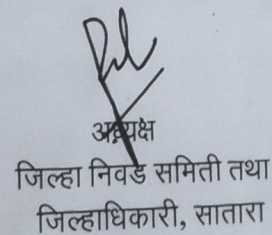 अध्यक्ष
जिल्हा निवड समिती तथा
जिल्हाधिकारी, सातारा